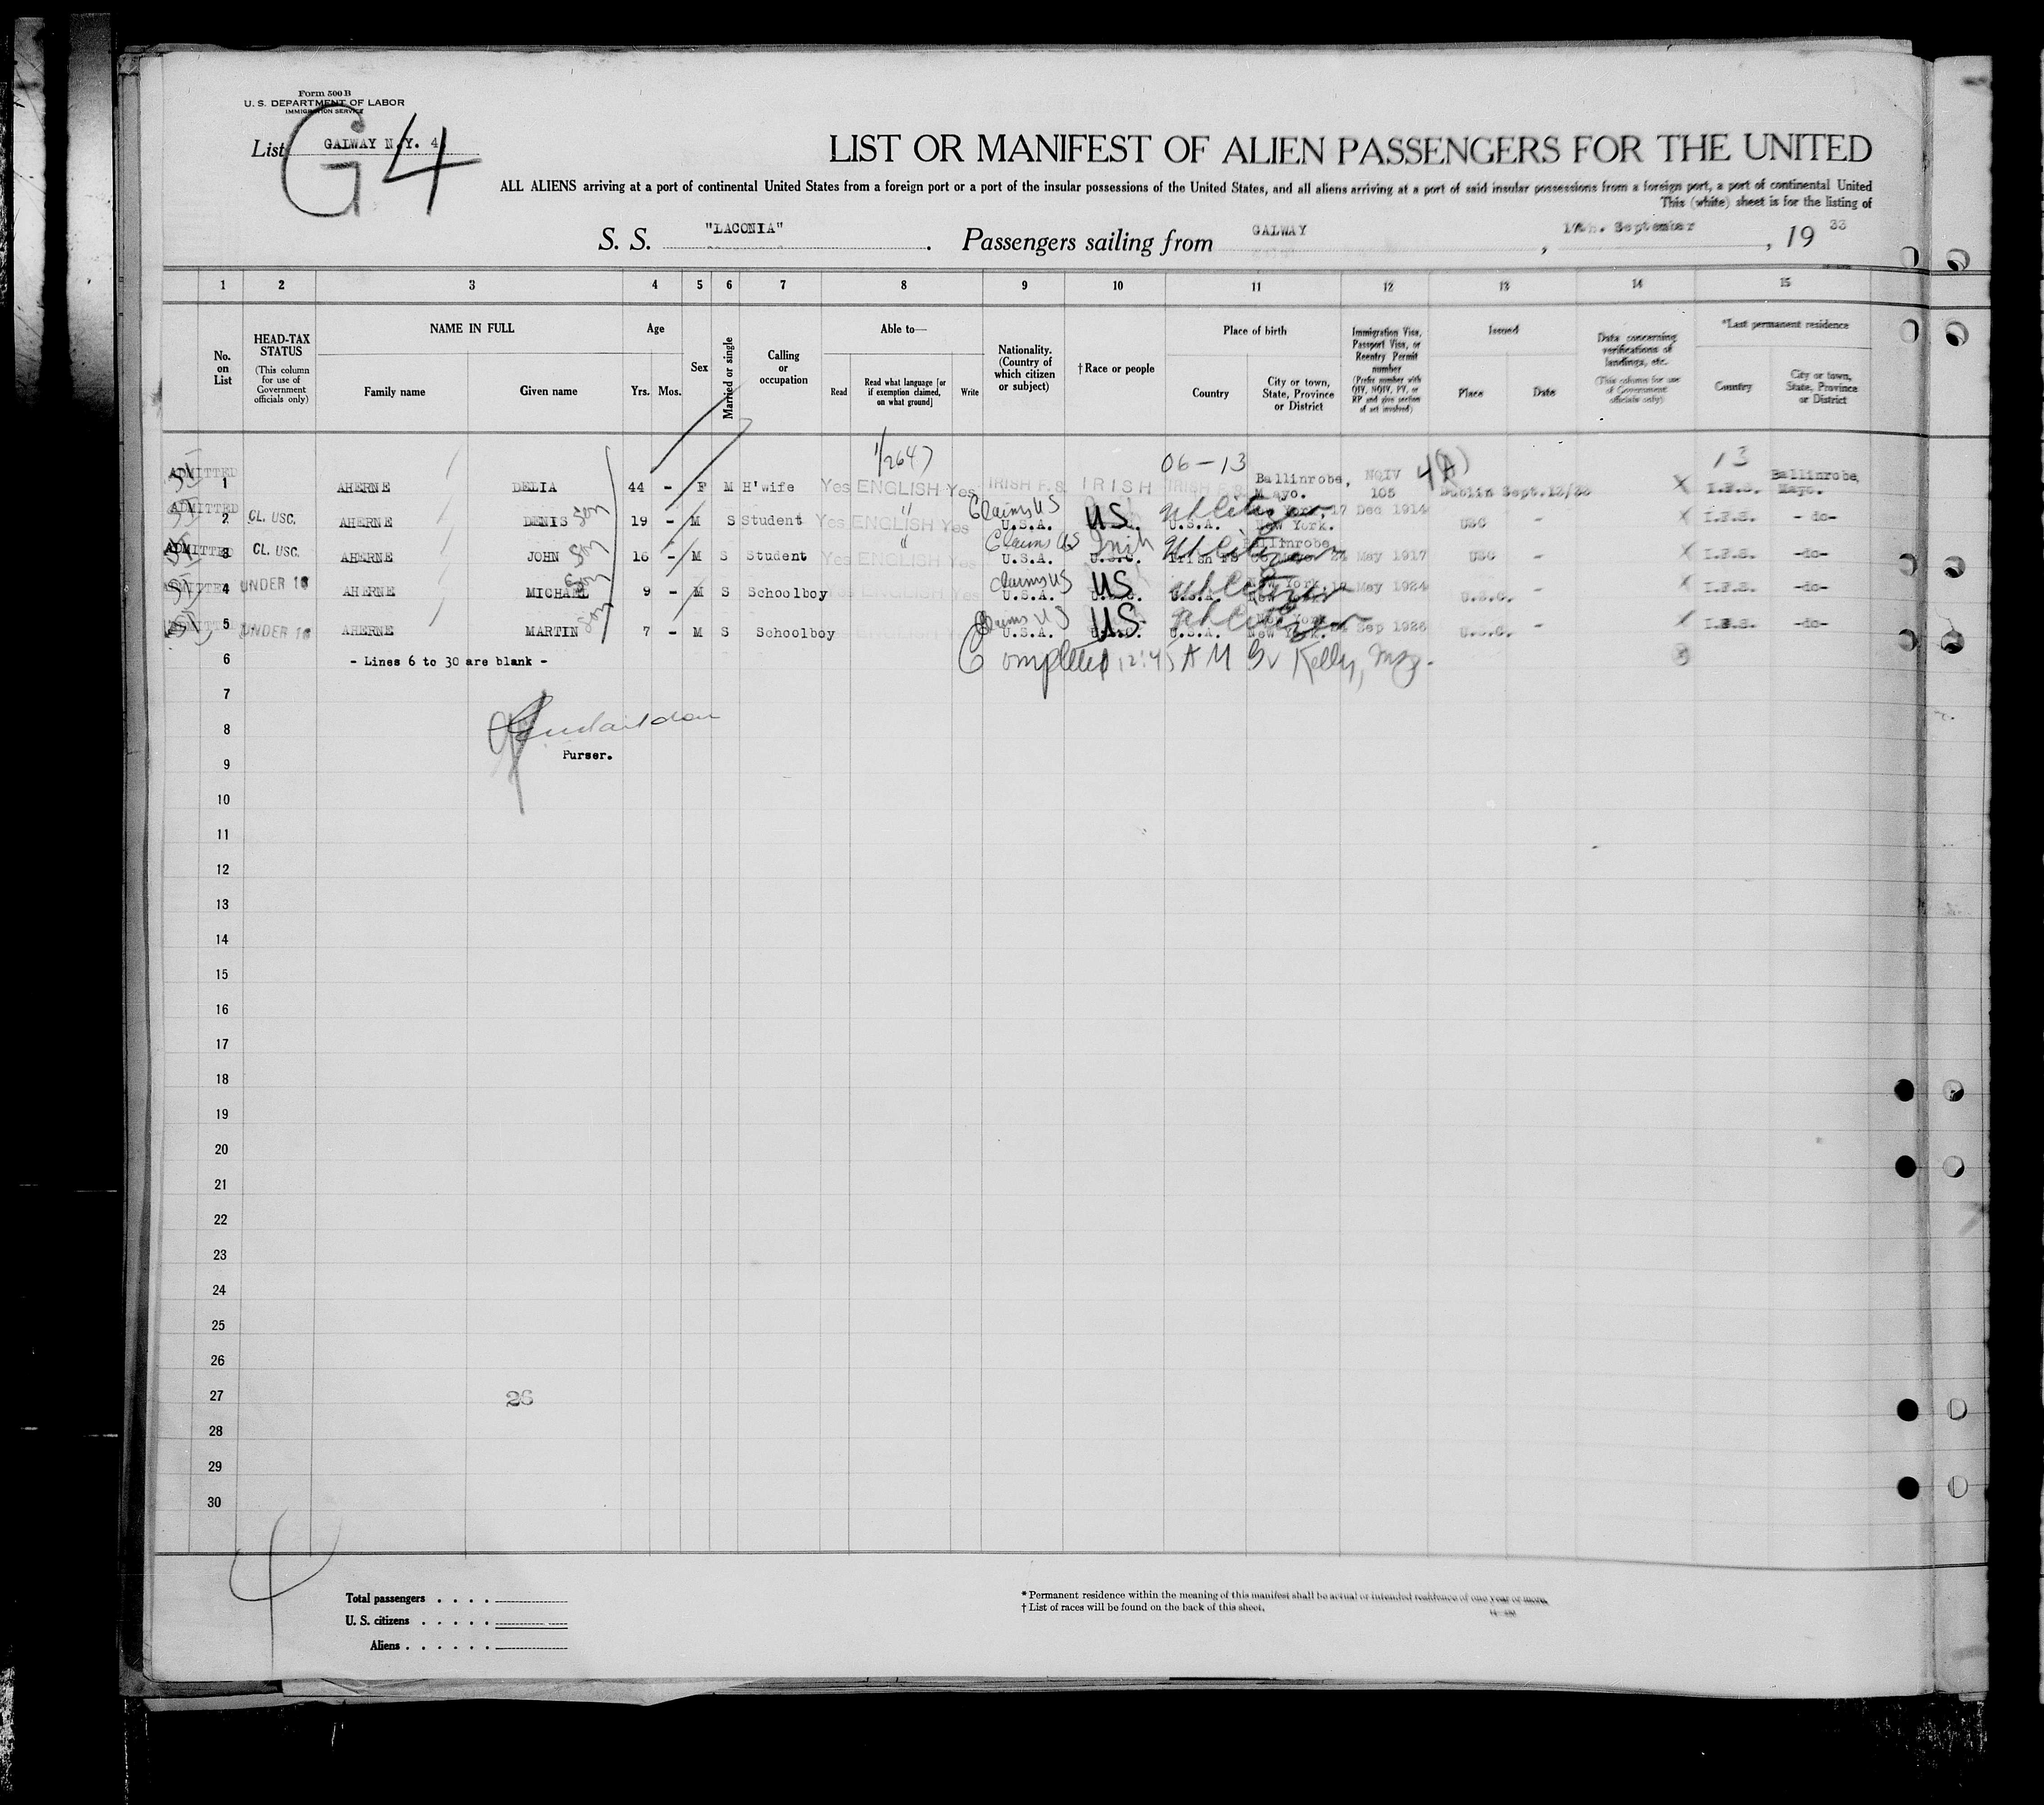 Form 500 B
U. S. DEPARTMENT OF LABOR
IMMIGRATION SERVICE
List GALWAY N.Y. 4
G4
LIST OR MANIFEST OF ALIEN PASSENGERS FOR THE UNITED
ALL ALIENS arriving at a port of continental United States from a foreign port or a port of the insular possessions of the United States, and all aliens arriving at a port of said insular possessions from a foreign port, a port of continental United
This (white) sheet is for the listing of
S. S. "LACONIA". Passengers sailing from GALWAY, September, 19 33
1 2 3 4 5 6 7 8 9 10 11 12 13 14 15
No. on List
HEAD-TAX STATUS (This column for use of Government officials only)
NAME IN FULL
Family name
Given name
Age
Yrs. Mos.
Sex
Married or single
Calling or occupation
Able to—
Read
Read what language [or if exemption claimed, on what ground]
Write
Nationality. (Country of which citizen or subject)
†Race or people
Place of birth
Country
City or town, State, Province or District
Immigration Visa, Passport Visa, or Reentry Permit number (Prefix number with QIV, NQIV, PV, or RP and give section of act involved)
Issued
Place
Date
Data concerning verifications of landings, etc. (This column for use of Government officials only)
*Last permanent residence
Country
City or town, State, Province or District
1/2647 06-13 4(A) 13
ADMITTED 1 AHERNE DELIA 44 - F M H'wife Yes ENGLISH Yes IRISH F.S. IRISH IRISH F.S. Ballinrobe, Mayo. NQIV 105 Dublin Sept.13/33 X I.F.S. Ballinrobe, Mayo.
ADMITTED 2 CL. USC. AHERNE DENIS son 19 - M S Student Yes ENGLISH Yes Claims US U.S.A. US. US Citizen U.S.A. New York. 17 Dec 1914 USC - X I.F.S. -do-
ADMITTED 3 CL. USC. AHERNE JOHN son 16 - M S Student Yes ENGLISH Yes Claims US U.S.A. Irish U.S.C. US Citizen Irish FS Ballinrobe May 1917 USC - X I.F.S. -do-
ADMITTED 4 UNDER 16 AHERNE MICHAEL son 9 - M S Schoolboy Yes ENGLISH Yes Claims US U.S.A. US US Citizen U.S.A. New York, New York. May 1924 U.S.C. - X I.F.S. -do-
ADMITTED 5 UNDER 16 AHERNE MARTIN son 7 - M S Schoolboy ENGLISH Claims US U.S.A. US US Citizen U.S.A. New York. Sep 1926 U.S.C. - X I.F.S. -do-
6 - Lines 6 to 30 are blank - Completed 12:45 AM Kelly,
7
8
Purser.
9
10
11
12
13
14
15
16
17
18
19
20
21
22
23
24
25
26
27 26
28
29
30
Total passengers . . . .
U. S. citizens . . . . .
Aliens . . . . . .
* Permanent residence within the meaning of this manifest shall be actual or intended residence of one year or more.
† List of races will be found on the back of this sheet.